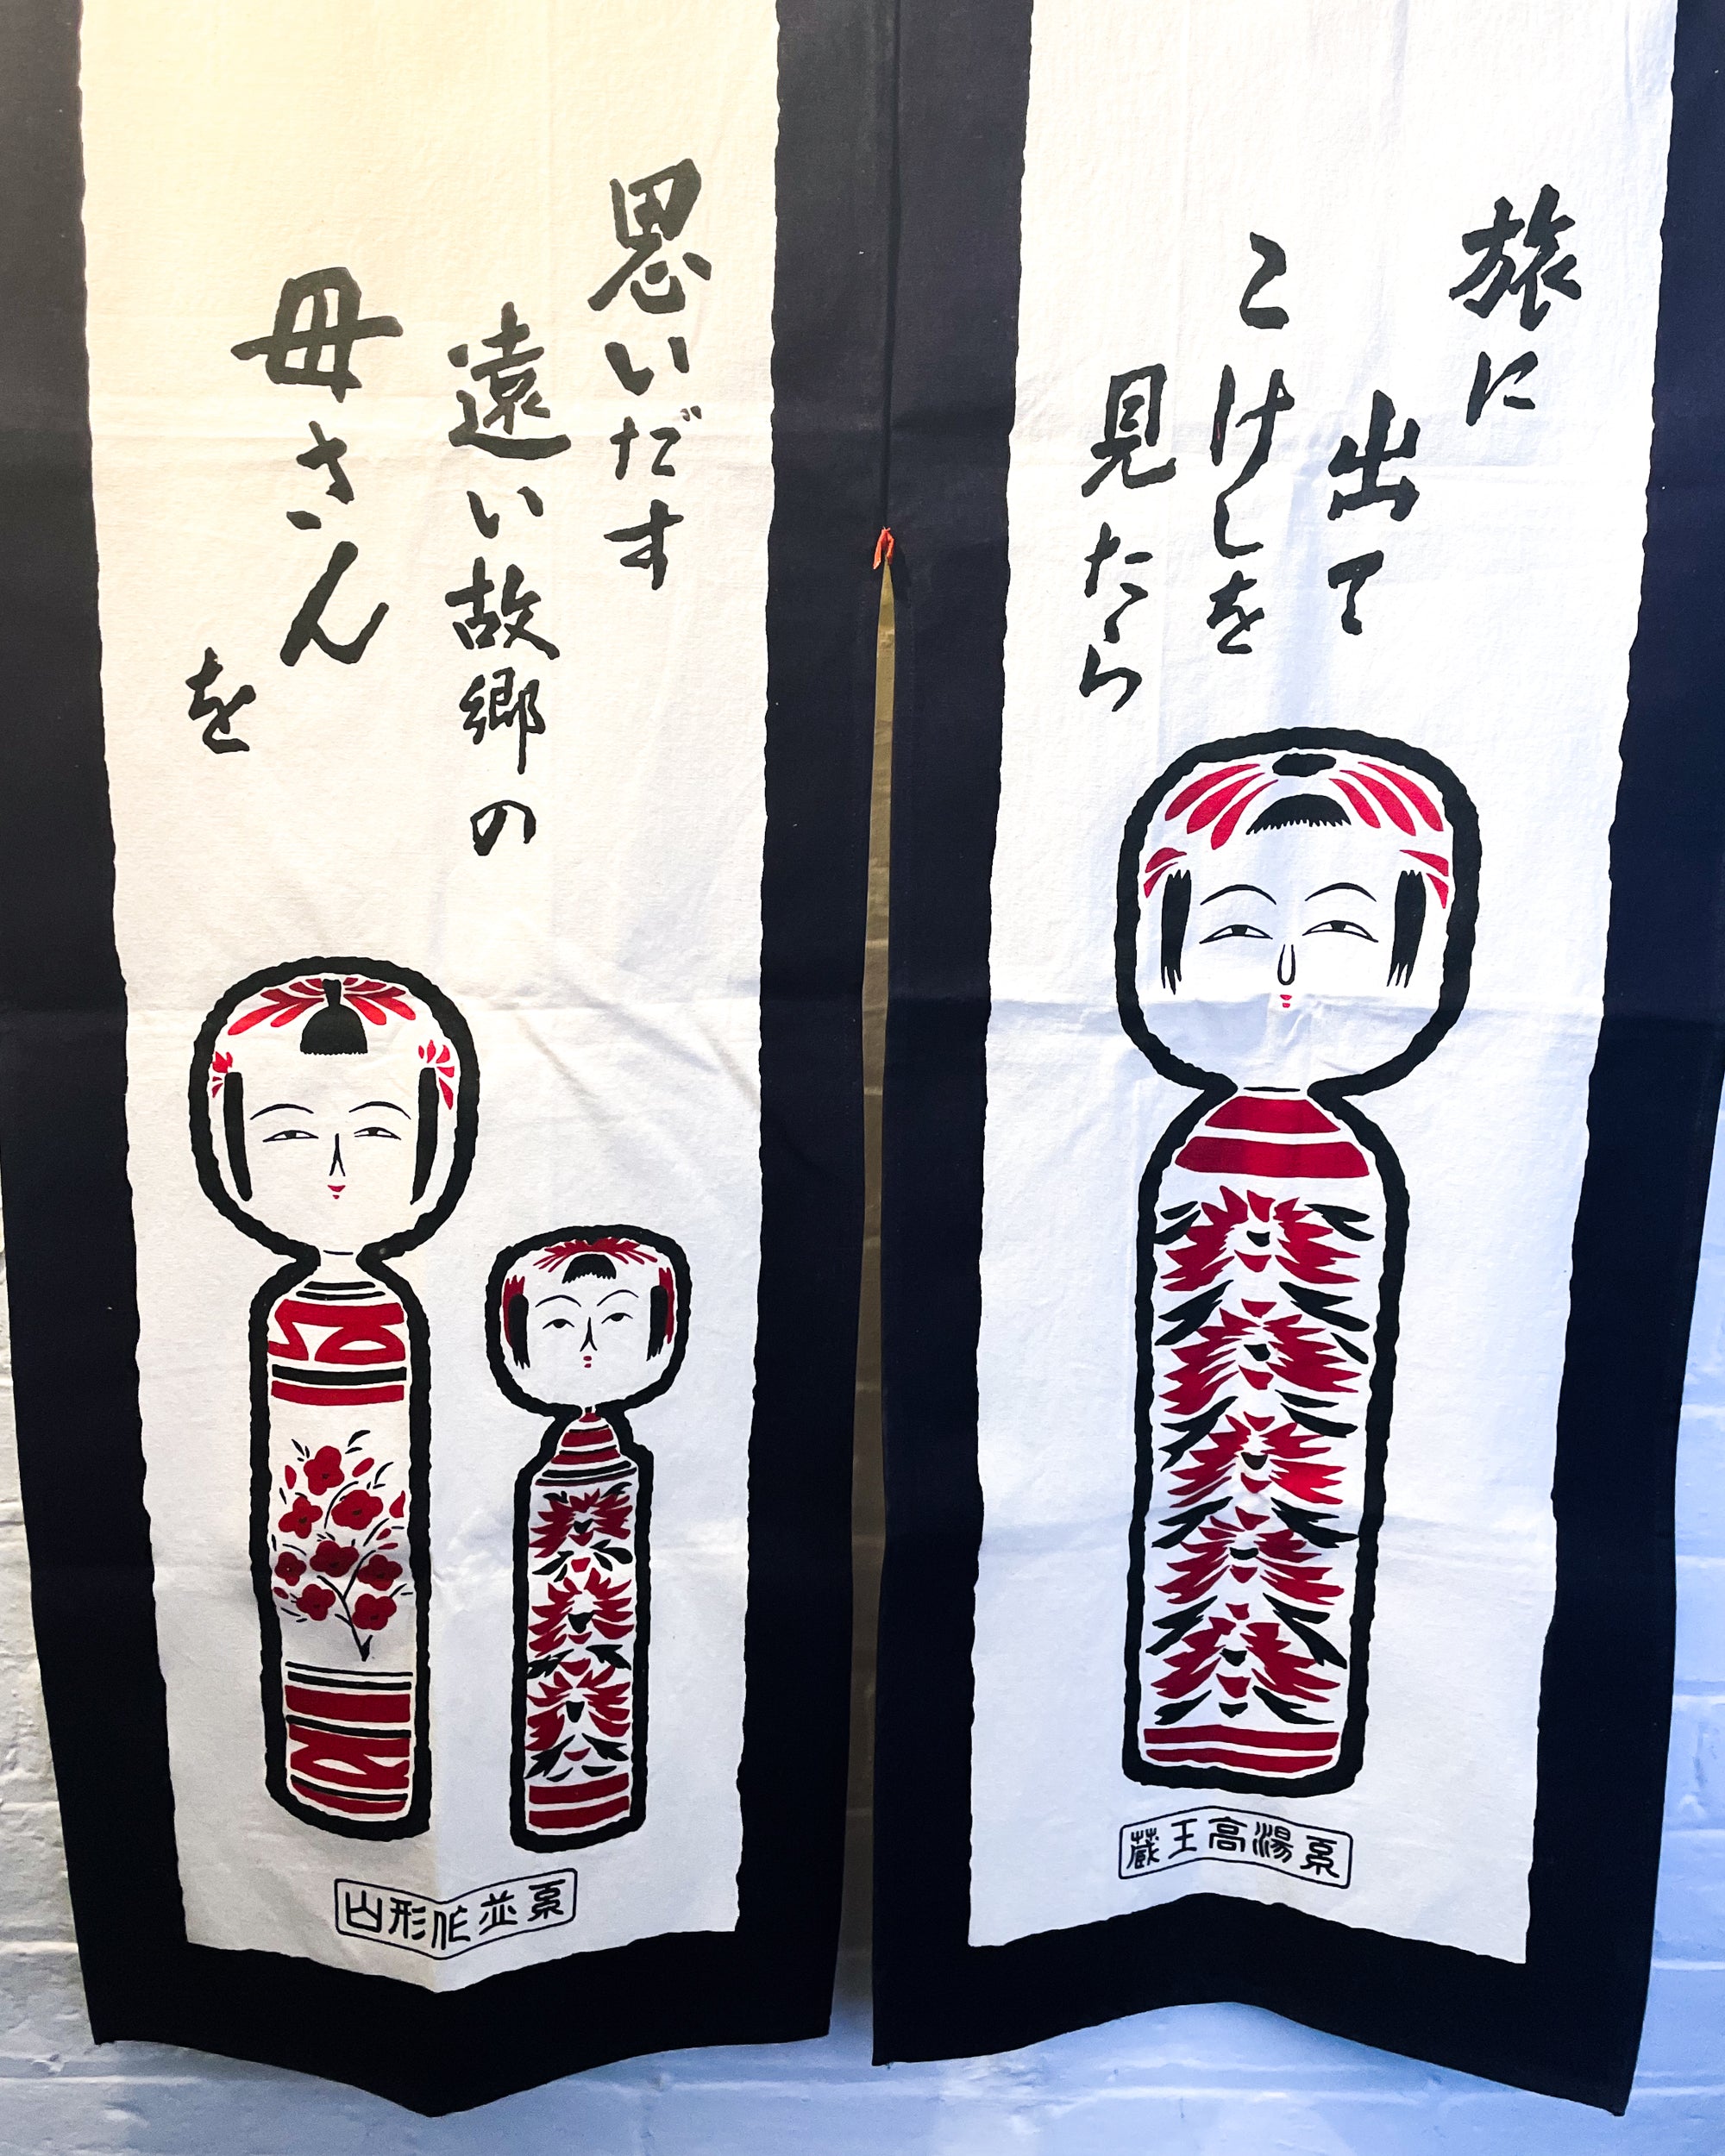 旅に
出て
こけしを
見たら
思いだす
遠い故郷の
母さん
を
蔵王高湯系
山形作並系